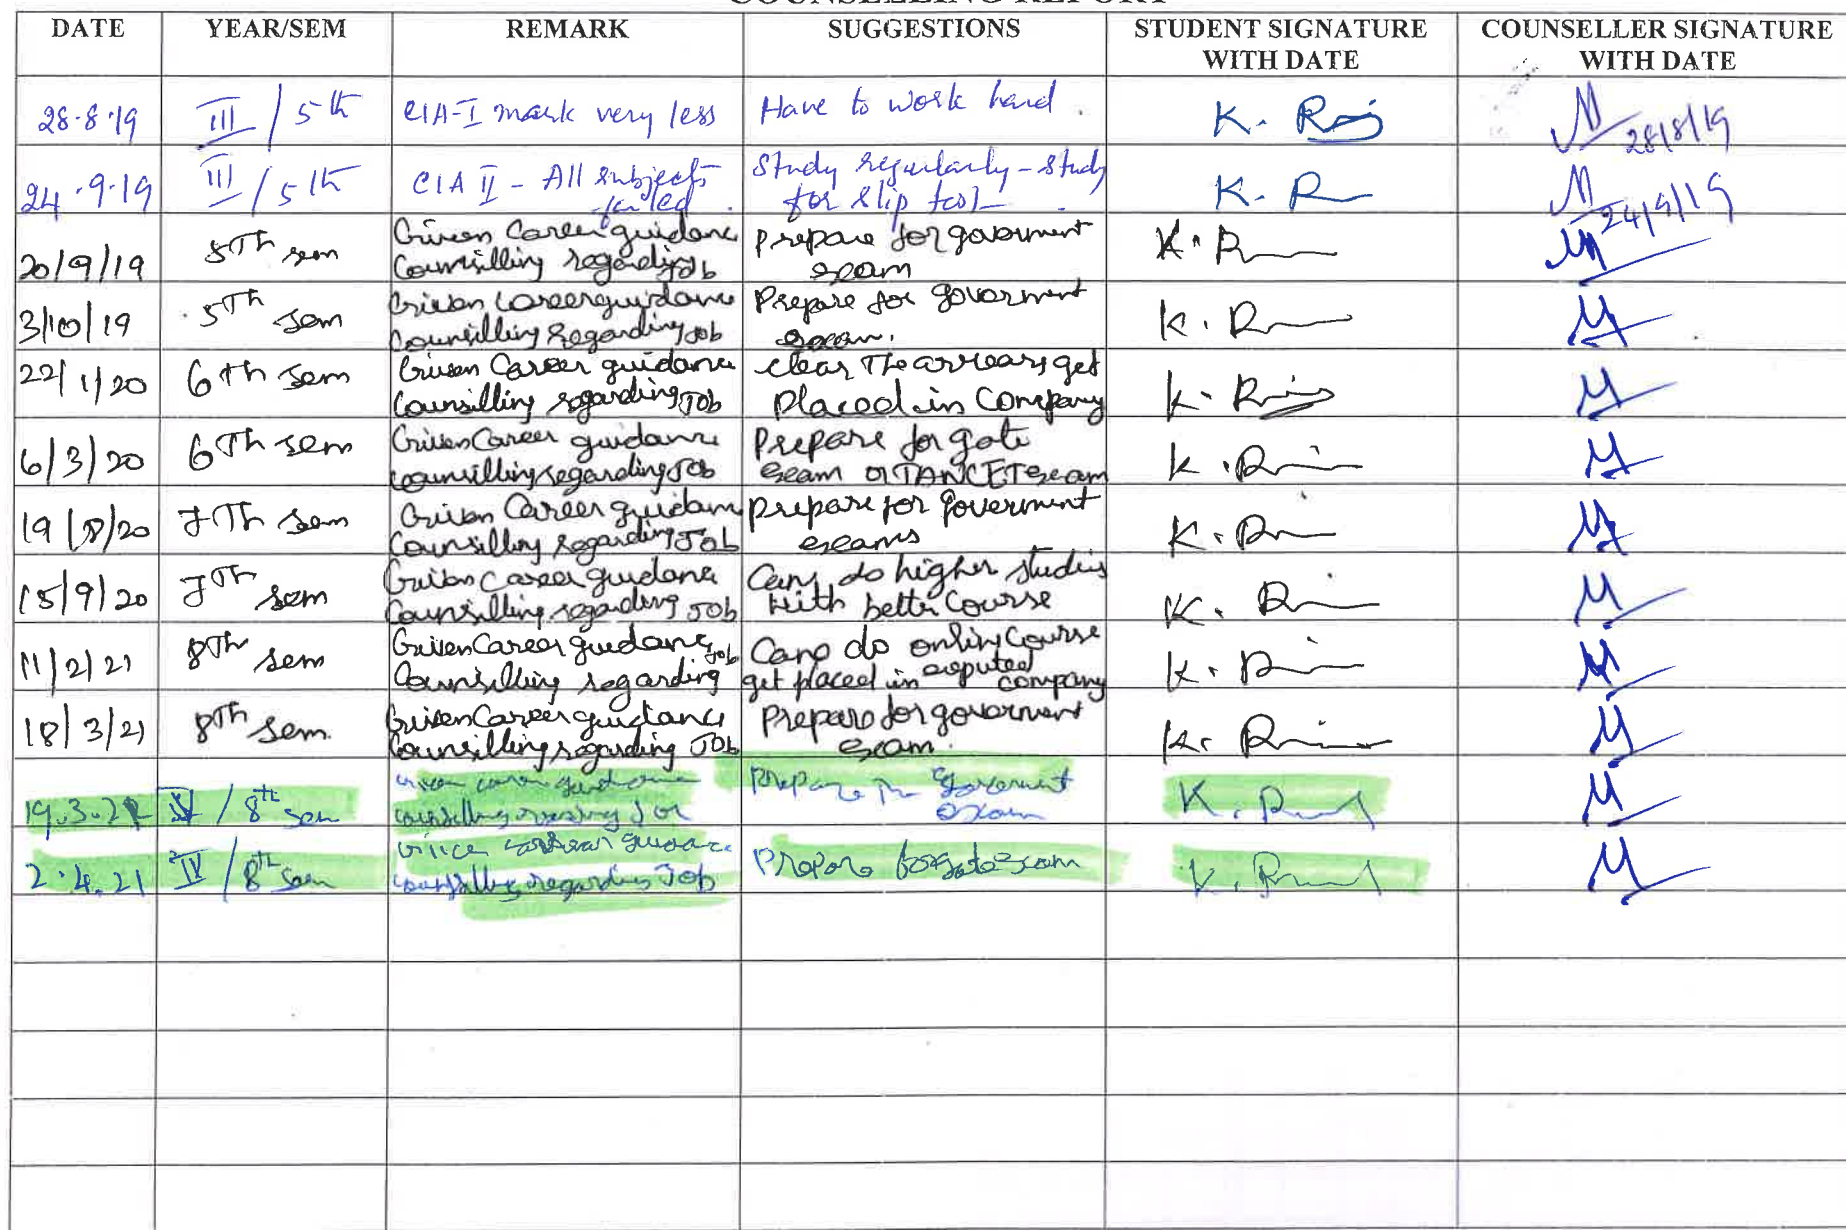 COUNSELLING REPORT
DATE YEAR/SEM REMARK SUGGESTIONS STUDENT SIGNATURE WITH DATE COUNSELLER SIGNATURE WITH DATE
28.8.19 III / 5th CIA-I mark very less Have to work hard. K. 28/8/19
24.9.19 III / 5th CIA II - All subjects failed. Study regularly - study for slip test K. R 24/9/19
20/9/19 5Th sem Given Career guidance Counsilling regarding Job Prepare for goverment exam K. R
3/10/19 5Th sem Given Career guidance Counsilling Regarding Job Prepare for goverment exam. K. R
22/1/20 6th sem Given Career guidance Counsilling regarding Job Clear The arrears get Placed in Company K. R
6/3/20 6Th sem Given Career guidance Counsilling regarding Job Prepare for gate exam or TANCET exam K. R
19/8/20 7Th sem Given Career guidance Counsilling regarding Job prepare for Goverment exams K. R
15/9/20 7Th sem Given Career guidance Counsilling regarding Job Can do higher studies With better Course K. R
11/2/21 8Th sem Given Career guidance Job Counsilling regarding Can do Course get placed in reputed company K. R
18/3/21 8Th sem. Given Career guidance Counsilling regarding Job Prepare for goverment exam. K. R
19.3.21 / 8th sem Given career guidance counselling Job Prepare exam K. R
2.4.21 IV / 8th sem guidance regarding Job Prepare for gate exam K. R